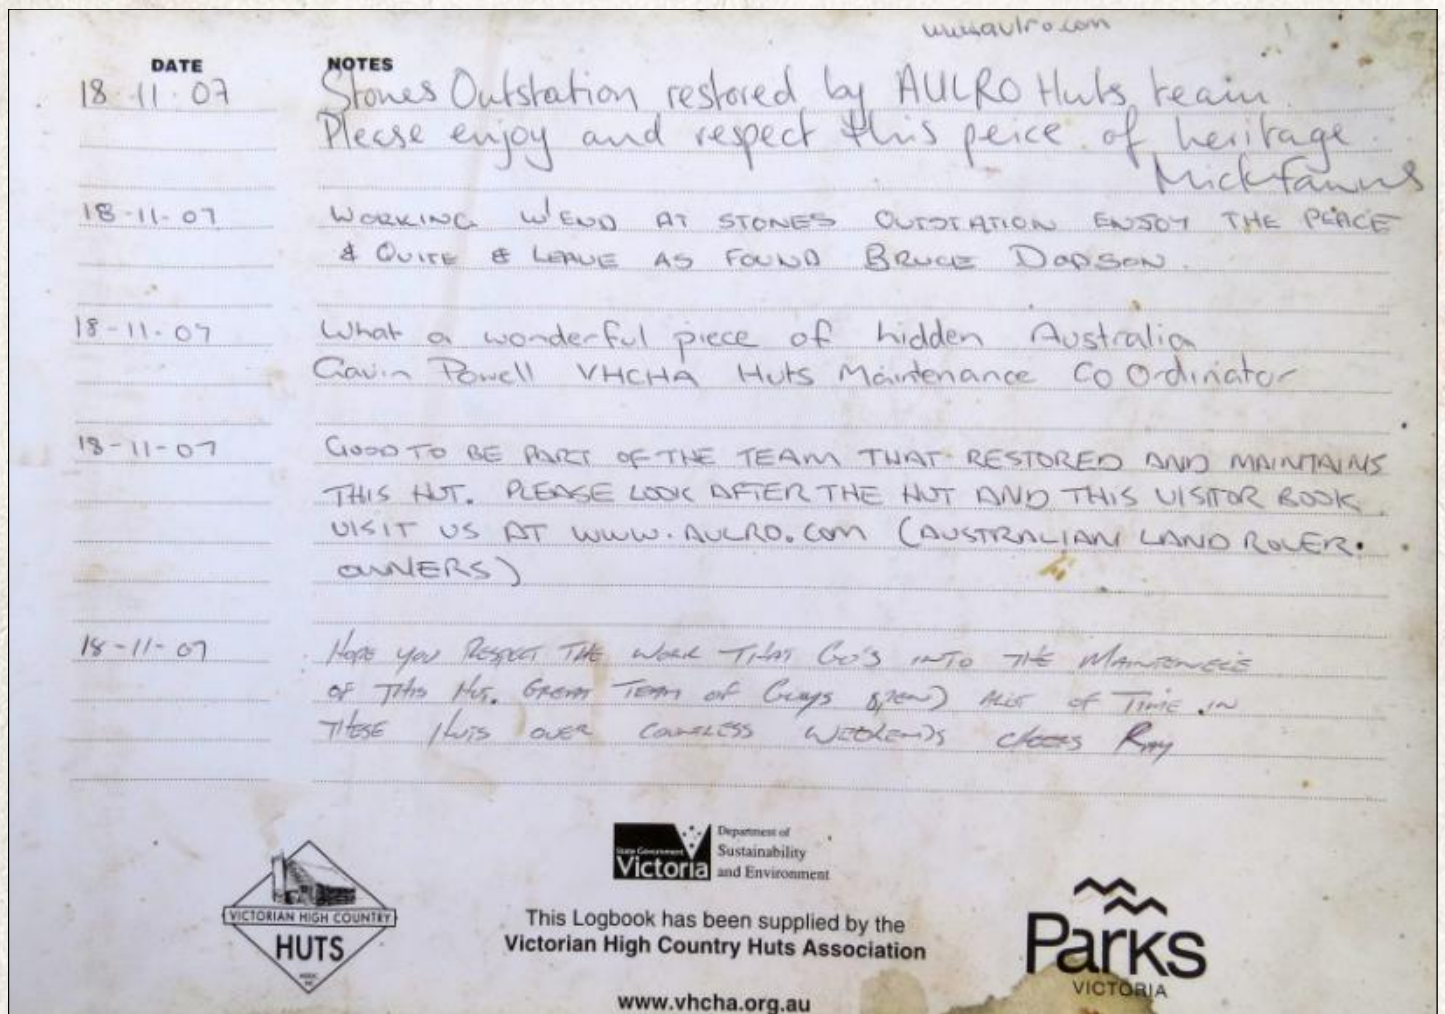 www.aulro.com
DATE NOTES
18-11-07 Stones Outstation restored by AULRO Huts team.
Please enjoy and respect this peice of heritage.
Mick Fawns
18-11-07 WORKING W'END AT STONES OUTSTATION ENJOY THE PEACE
& QUITE & LEAVE AS FOUND BRUCE DODSON.
18-11-07 What a wonderful piece of hidden Australia
Gavin Powell VHCHA Huts Maintenance CoOrdinator
18-11-07 GOOD TO BE PART OF THE TEAM THAT RESTORED AND MAINTAINS
THIS HUT. PLEASE LOOK AFTER THE HUT AND THIS VISITOR BOOK.
VISIT US AT WWW.AULRO.COM (AUSTRALIAN LAND ROVER
OWNERS)
18-11-07 HOPE YOU RESPECT THE WORK THAT GO'S INTO THE
OF THIS HUT. GREAT TEAM OF GUYS SPEND ALOT OF TIME IN
THESE HUTS OVER WEEKENDS CHEERS RAY
VICTORIAN HIGH COUNTRY
HUTS
ASSOC
INC
State Government
Victoria
Department of
Sustainability
and Environment
This Logbook has been supplied by the
Victorian High Country Huts Association
www.vhcha.org.au
Parks
VICTORIA